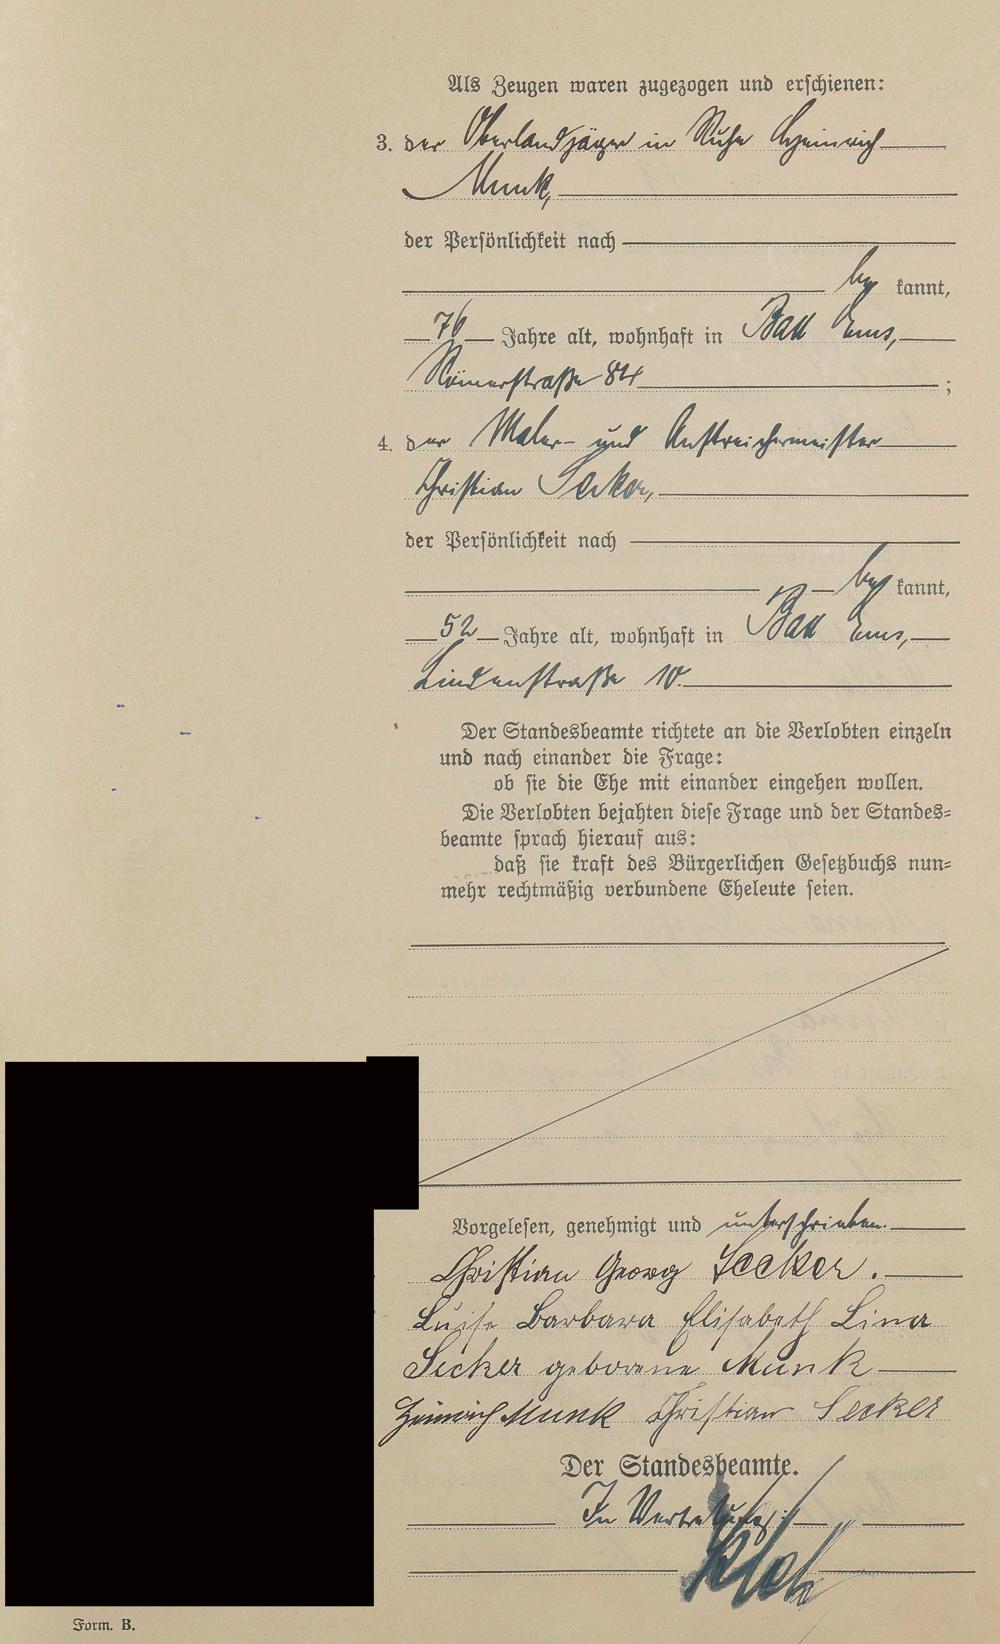 Als Zeugen waren zugezogen und erschienen:
3. der Oberlandjäger in Ruhe Heinrich
Munk,
der Persönlichkeit nach
be kannt,
76 Jahre alt, wohnhaft in Bad Ems,
Römerstraße 84 ;
4. der Maler- und Anstreichermeister
Christian Secker,
der Persönlichkeit nach
be kannt,
52 Jahre alt, wohnhaft in Bad Ems,
Lindenstraße 10.
Der Standesbeamte richtete an die Verlobten einzeln
und nach einander die Frage:
ob sie die Ehe mit einander eingehen wollen.
Die Verlobten bejahten diese Frage und der Standes-
beamte sprach hierauf aus:
daß sie kraft des Bürgerlichen Gesetzbuchs nun-
mehr rechtmäßig verbundene Eheleute seien.
Vorgelesen, genehmigt und unterschrieben.
Christian Georg Secker.
Luise Barbara Elisabeth Lina
Secker geborene Munk
Heinrich Munk Christian Secker
Der Standesbeamte.
In Vertretung:
Form. B.